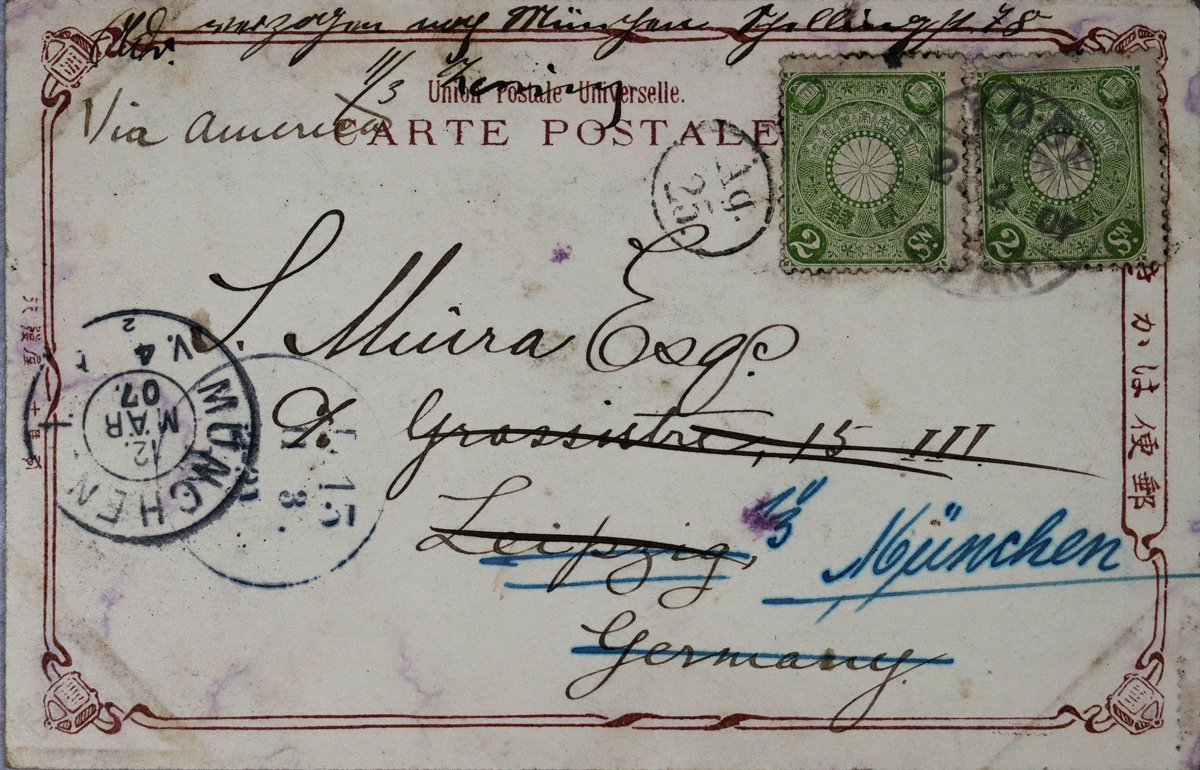 Adr. verzogen nach München Schellingstr. 78
11/3
Union Postale Universelle.
Via America
CARTE POSTALE
2 Sn.
2 Sn.
Ag. 25
S. Miura Esq.
Grassistr, 15 III
Leipzig,
11/3
München
Germany
MÜNCHEN
12. MAR 07.
V. 4
郵便はかき